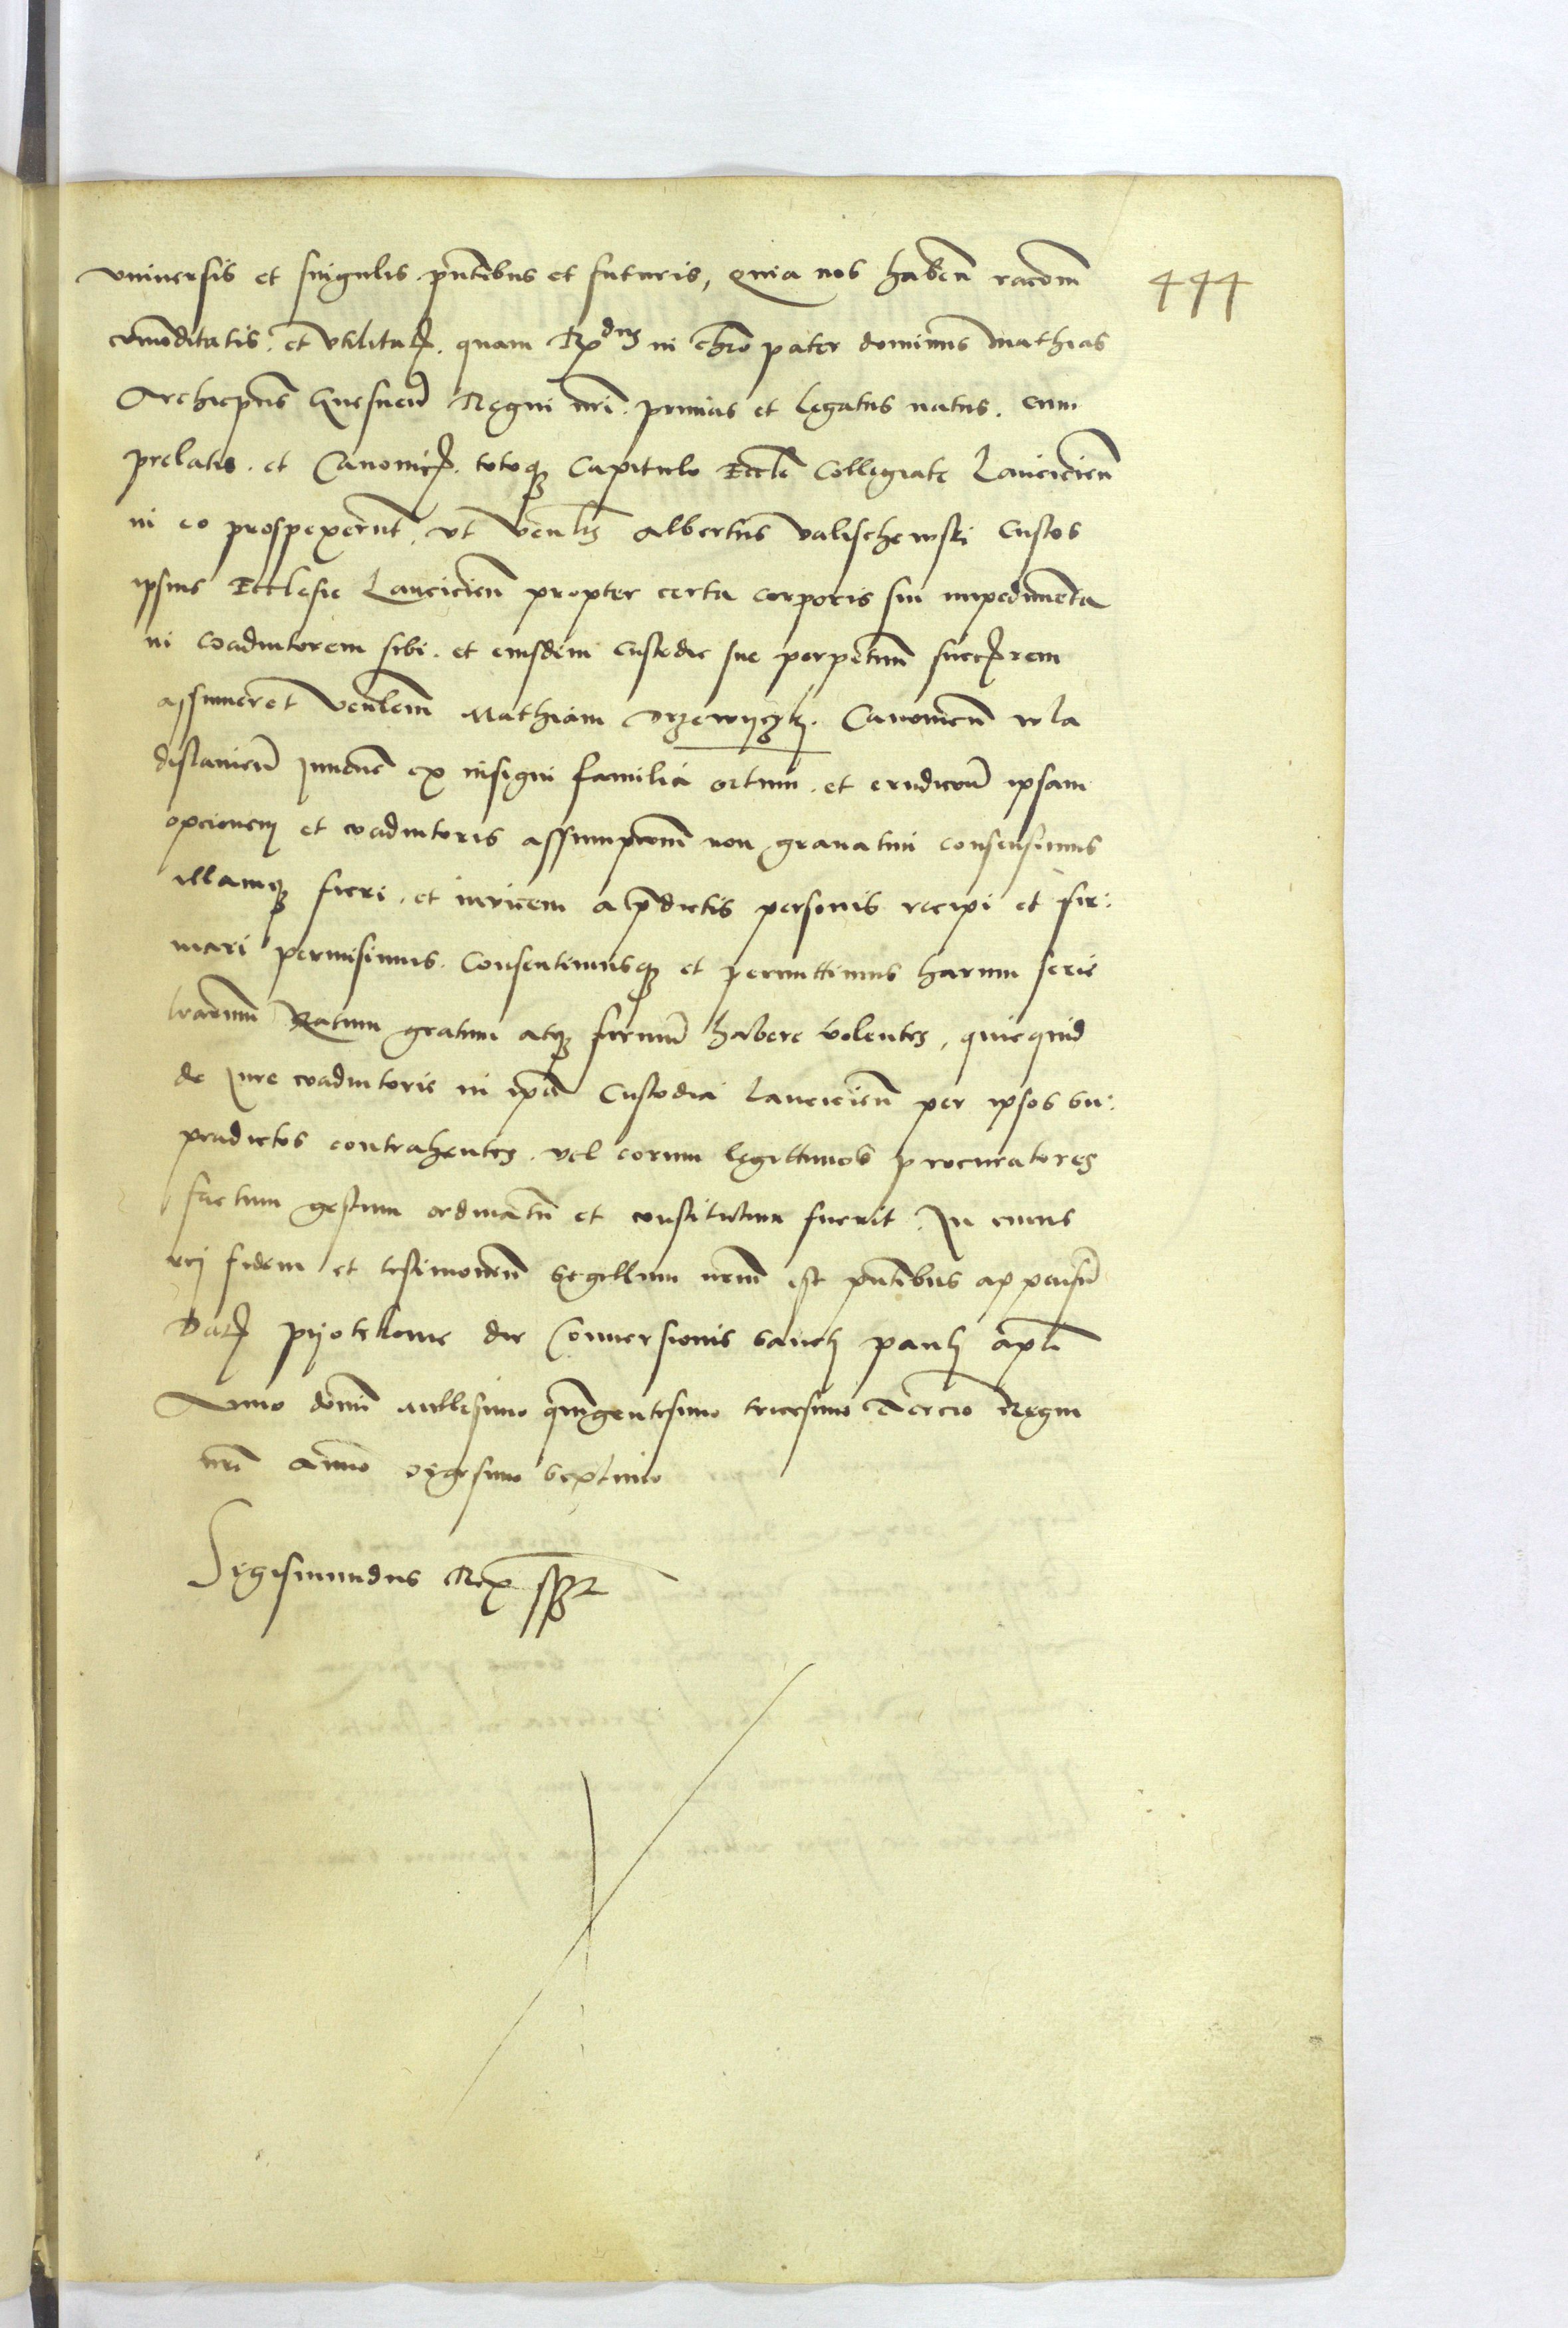 vniuersis et singulis pñtibus et futuris, quia nos habeñ racõem 444
cõmoditatis. et vtilitatis. quam Rxdus in chro pater dominus Mathias
Archiepũs Gnesneñ Regni nri. primas et legatus natus. cum
prelatis. et Canonicis. totoque Capitulo Eccle Collegiate Lanicicieñ
in eo prospexerunt, vt venlis Albertus valischewski Custos
ipsius Ecclesie Lancicieñ propter certa corporis sui impedimenta
in coadiutorem sibi. et eiusdem Custodie sue perpetuum successorem
assumeret venlem Mathiam Drzewyczky. Canonicũ wla
dislauieñ Juuenẽ ex insigni familia ortum. et eruditũ ipsam
opcionem et coadiutoris assumpcõem non grauatim consensimus
illamque fieri. et inuicem a p̃dictis personis recipi et fir:
mari permisimus. Consentimusque et permittimus harum serie
lrarum Ratum gratum atque firmũ habere volentes, quicquid
de Jure coadiutorie in ip̃a Custodia Lancicieñ per ipsos su:
pradictos contrahentes. vel eorum legittimos procuratores
factum gestum ordinatũ et constitutum fuerit. In cuius
rei fidem et testimoniũ Sigillum nrm est pñtibus appensũ
Datis pyotrkowie die Conuersionis Sancti pauli apli
Anno domĩ Millesimo quĩgentesimo tricesimo Tercio Regni
nri Anno vigesimo Septimo
Sigismundus Rex sst